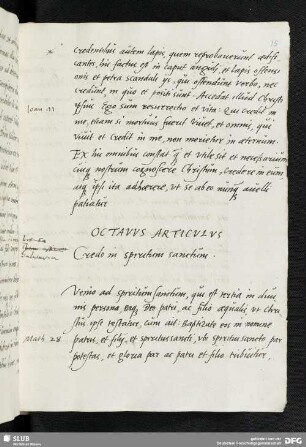 credentibus autem lapis, quem reprobaverunt edifi
cantes, hic factus est in caput anguli, et lapis offensi
onis et petra scandali ijs, qui offendunt verbo, nec
credunt in quo et positi sunt. Accedat illud Christi
Ioan 11
ipsius Ego sum resurrectio et vita: Qui credit in
me, etiam si mortuus fuerit vivet, et omnis, qui
vivit et credit in me, non morietur in aeternum.
Ex his omnibus constat et utile sit et necessarium
nostrum cognoscere Christum, credere in eum
ipsi ita adhaerere, ut se ab eo avelli
patiatur
OCTAVVS ARTICVLVS
Credo in spiritum sanctum.
Venio ad spiritum sanctum, qui est tertia in divi
nis persona, Deo patri, ac filio aequalis, ut Chri
stus ipse testatur, cum ait: Baptizate eos in nomine
Math 28
patris, et filij, et spiritus sancti, ubi spiritui sancto par
potestas, et gloria par ac patri et filio tribuitur.
SLUB
Wir führen Wissen.
DFG